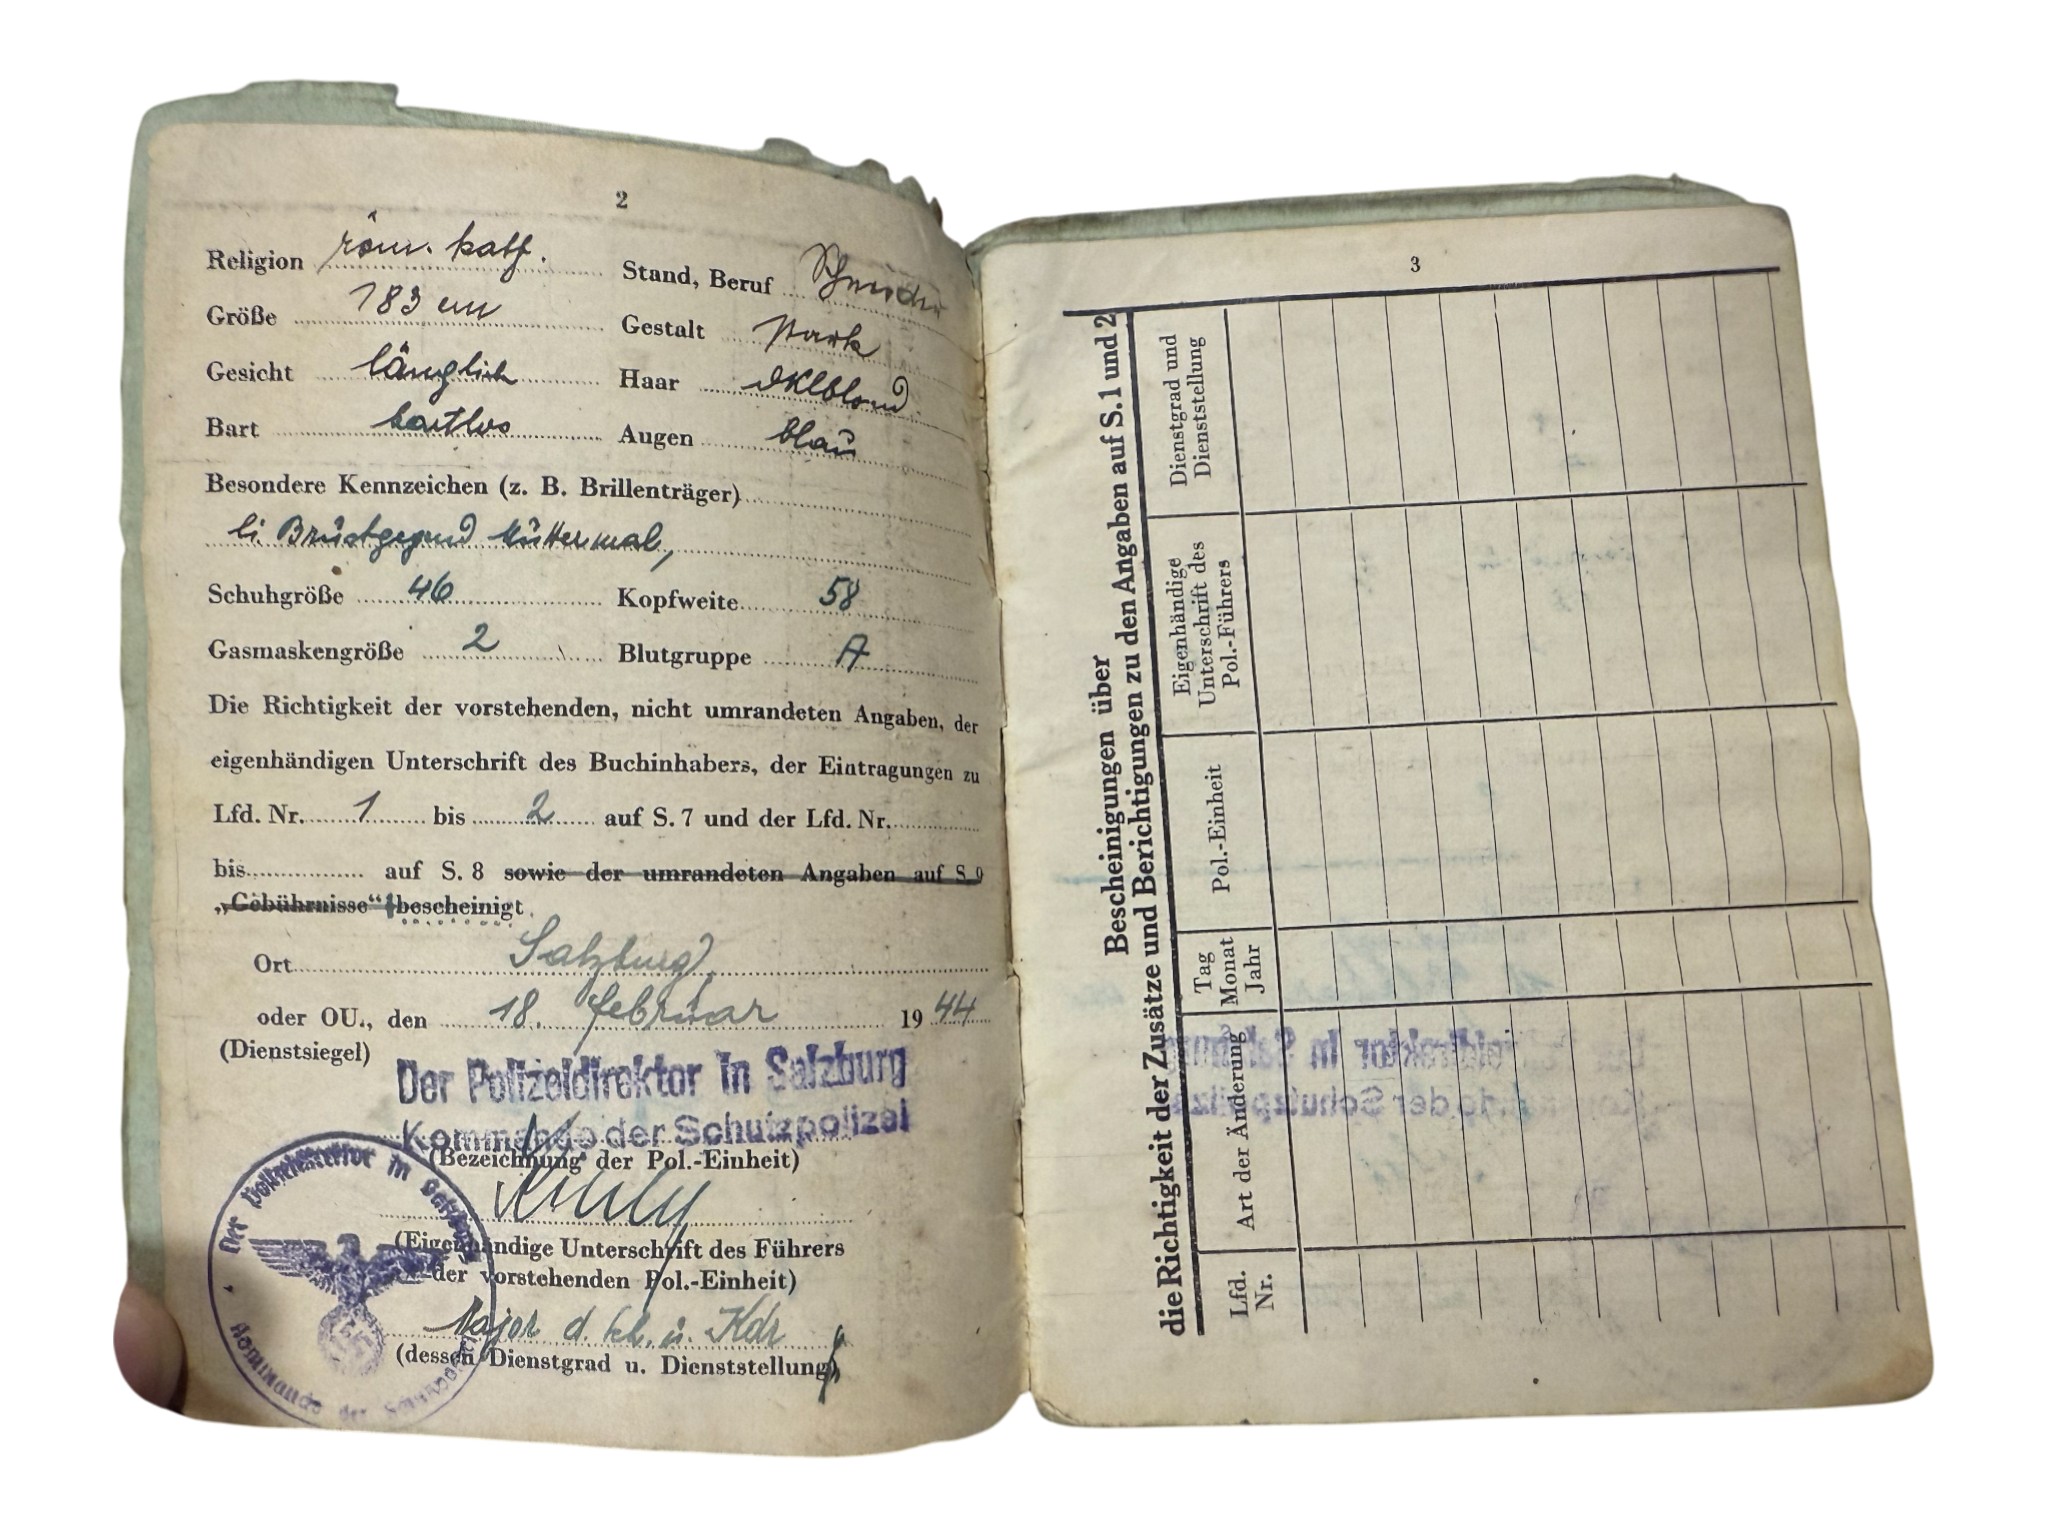 2
Religion röm. kath. Stand, Beruf
Größe 183 cm Gestalt stark
Gesicht länglich Haar dklblond
Bart bartlos Augen blau
Besondere Kennzeichen (z. B. Brillenträger)
li Brustgegend Muttermal,
Schuhgröße 46 Kopfweite 58
Gasmaskengröße 2 Blutgruppe A
Die Richtigkeit der vorstehenden, nicht umrandeten Angaben, der
eigenhändigen Unterschrift des Buchinhabers, der Eintragungen zu
Lfd. Nr. 1 bis 2 auf S. 7 und der Lfd. Nr.
bis auf S. 8 sowie der umrandeten Angaben auf S. 9
„Gebührnisse“ bescheinigt
Ort Salzburg,
oder OU., den 18. Februar 1944
(Dienstsiegel)
Der Polizeidirektor in Salzburg
Kommando der Schutzpolizei
(Bezeichnung der Pol.-Einheit)
(Eigenhändige Unterschrift des Führers
der vorstehenden Pol.-Einheit)
Major d. Sch. u. Kdr
(dessen Dienstgrad u. Dienststellung)
Der Polizeidirektor in Salzburg
Kommando der Schutzpolizei
3
Bescheinigungen über
die Richtigkeit der Zusätze und Berichtigungen zu den Angaben auf S. 1 und 2
Lfd.
Nr.
Art der Änderung
Tag
Monat
Jahr
Pol.-Einheit
Eigenhändige
Unterschrift des
Pol.-Führers
Dienstgrad und
Dienststellung